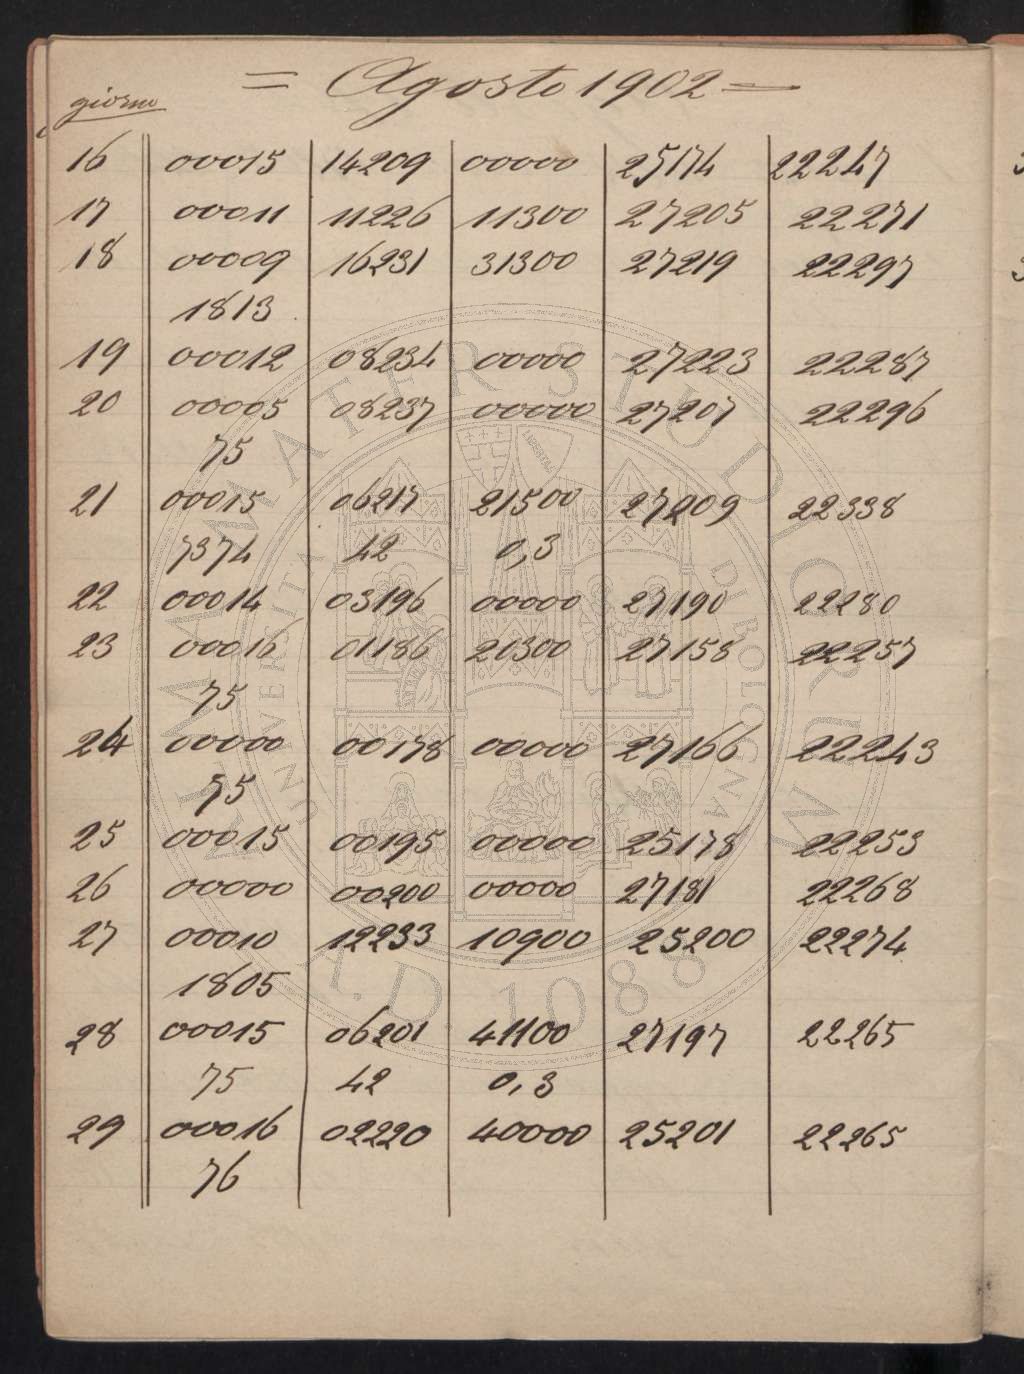 = Agosto 1902 =
giorno
16 00015 14209 00000 25174 22247
17 00011 11226 11300 27205 22271
18 00009 16231 31300 27219 22297
1813
19 00012 08234 00000 27223 22287
20 00005 08237 00000 27207 22296
75
21 00015 06217 21500 27209 22338
7374 42 0,3
22 00014 03196 00000 27190 22280
23 00016 01186 20300 27158 22257
75
24 00000 00178 00000 27166 22243
75
25 00015 00195 00000 25178 22253
26 00000 00200 00000 27181 22268
27 00010 12233 10900 25200 22274
1805
28 00015 06201 41100 27197 22265
75 42 0,3
29 00016 02220 40000 25201 22265
76
ALMA MATER STUDIORUM
UNIVERSITÀ DI BOLOGNA
A.D. 1088